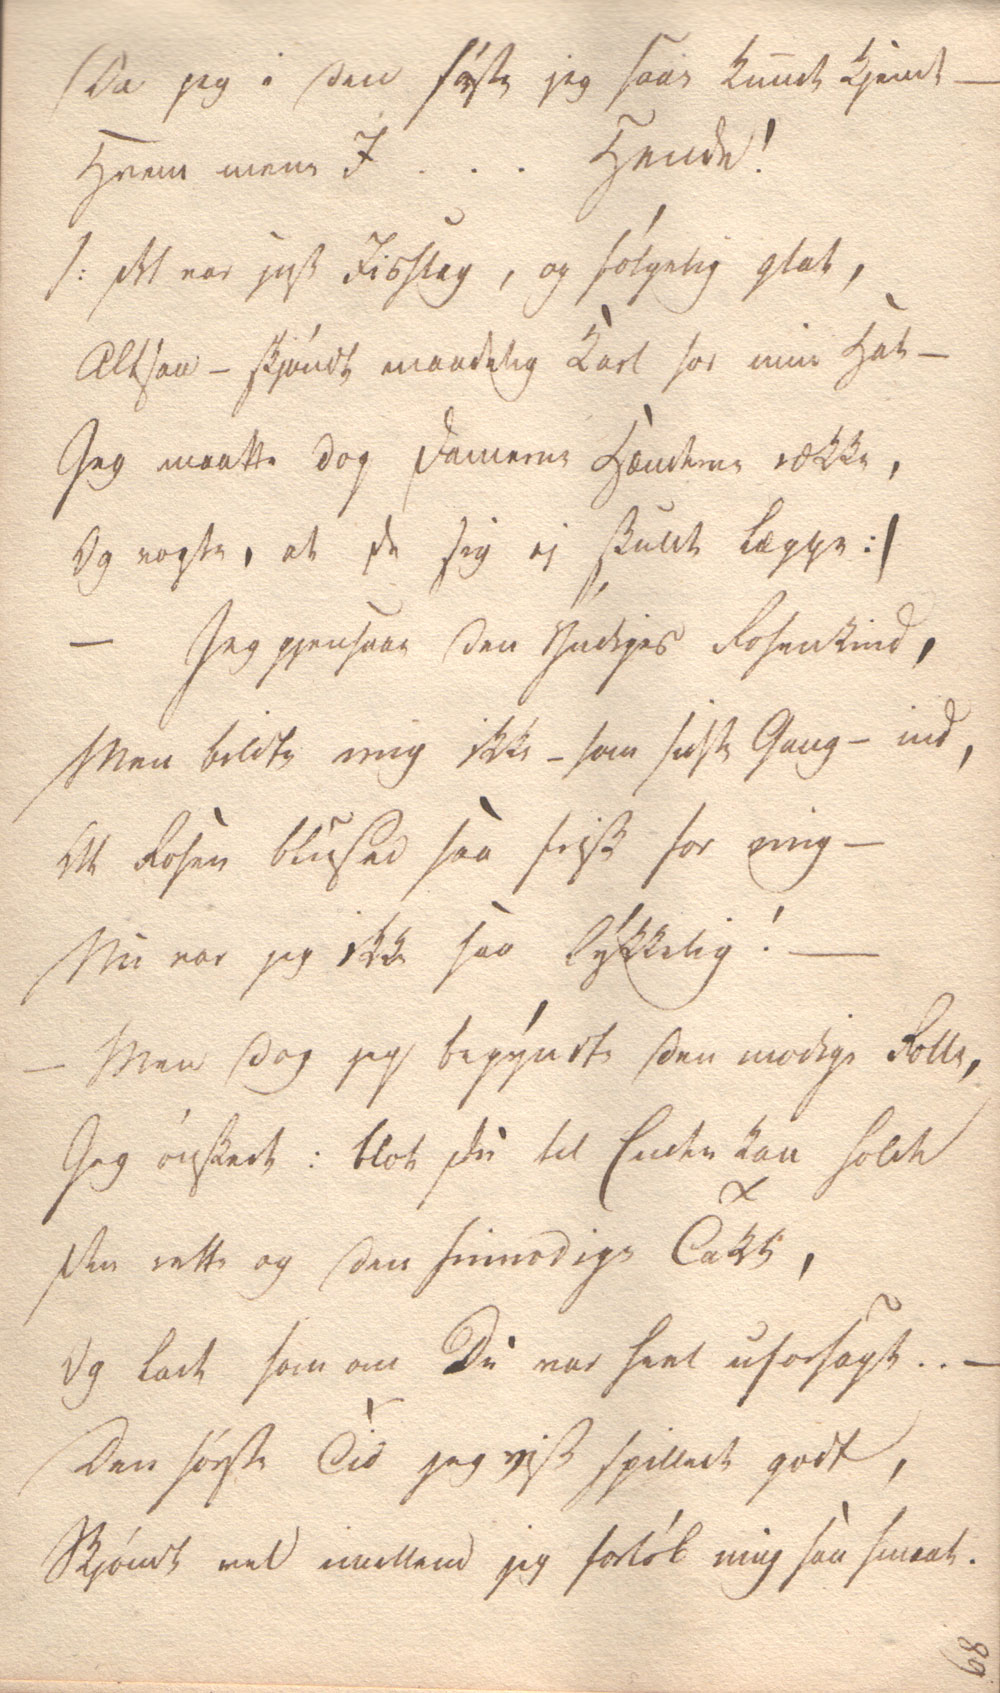 Da jeg i den første jeg saae kundt kjendt —
Hvem mene I . . . Hende!
/: Det var just Iisslag, og følgelig glat,
Altsaa – skjøndt maadelig Karl for min Hat –
Jeg maatte dog Damerne Hænderne række,
Og vogte, at De sig ej skulde lægge :/
— Jeg gjensaae den Yndiges Rosenkind,
Men bildte mig ikke – som sidste Gang – ind,
At Rosen blussed saa frisk for mig –
Nu var jeg ikke saa lykkelig! —
— Men dog jeg begyndte den modige Rolle,
Jeg ønskede: blot Du til Enden kan holde
Den rette og den sindrodige Takt,
Og lade som om Du var heel uforsagt.. —
Den første Tid jeg vist spillede godt,
Skjøndt vel imellem jeg forløb mig saa smaat.
68